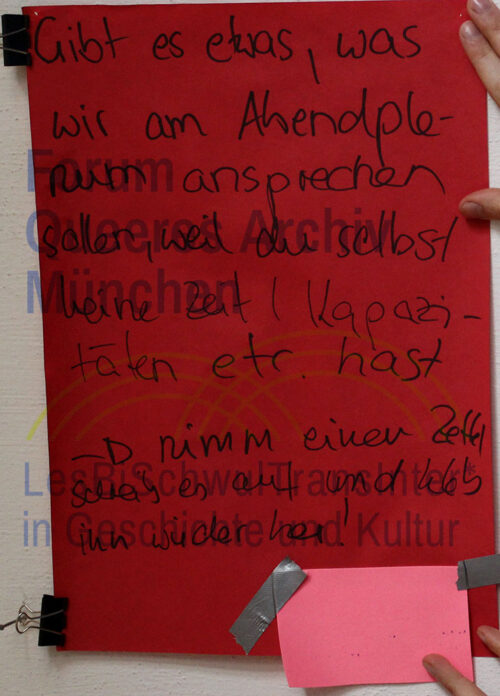 Gibt es etwas, was
wir am Abendple-
num ansprechen
sollen, weil du selbst
keine Zeit / Kapazi-
täten etc. hast
→ nimm einen Zettel,
schreib es auf und kleb
ihn wieder her!
Forum
Queeres Archiv
München
LesBiSchwulTransInter*
in Geschichte und Kultur